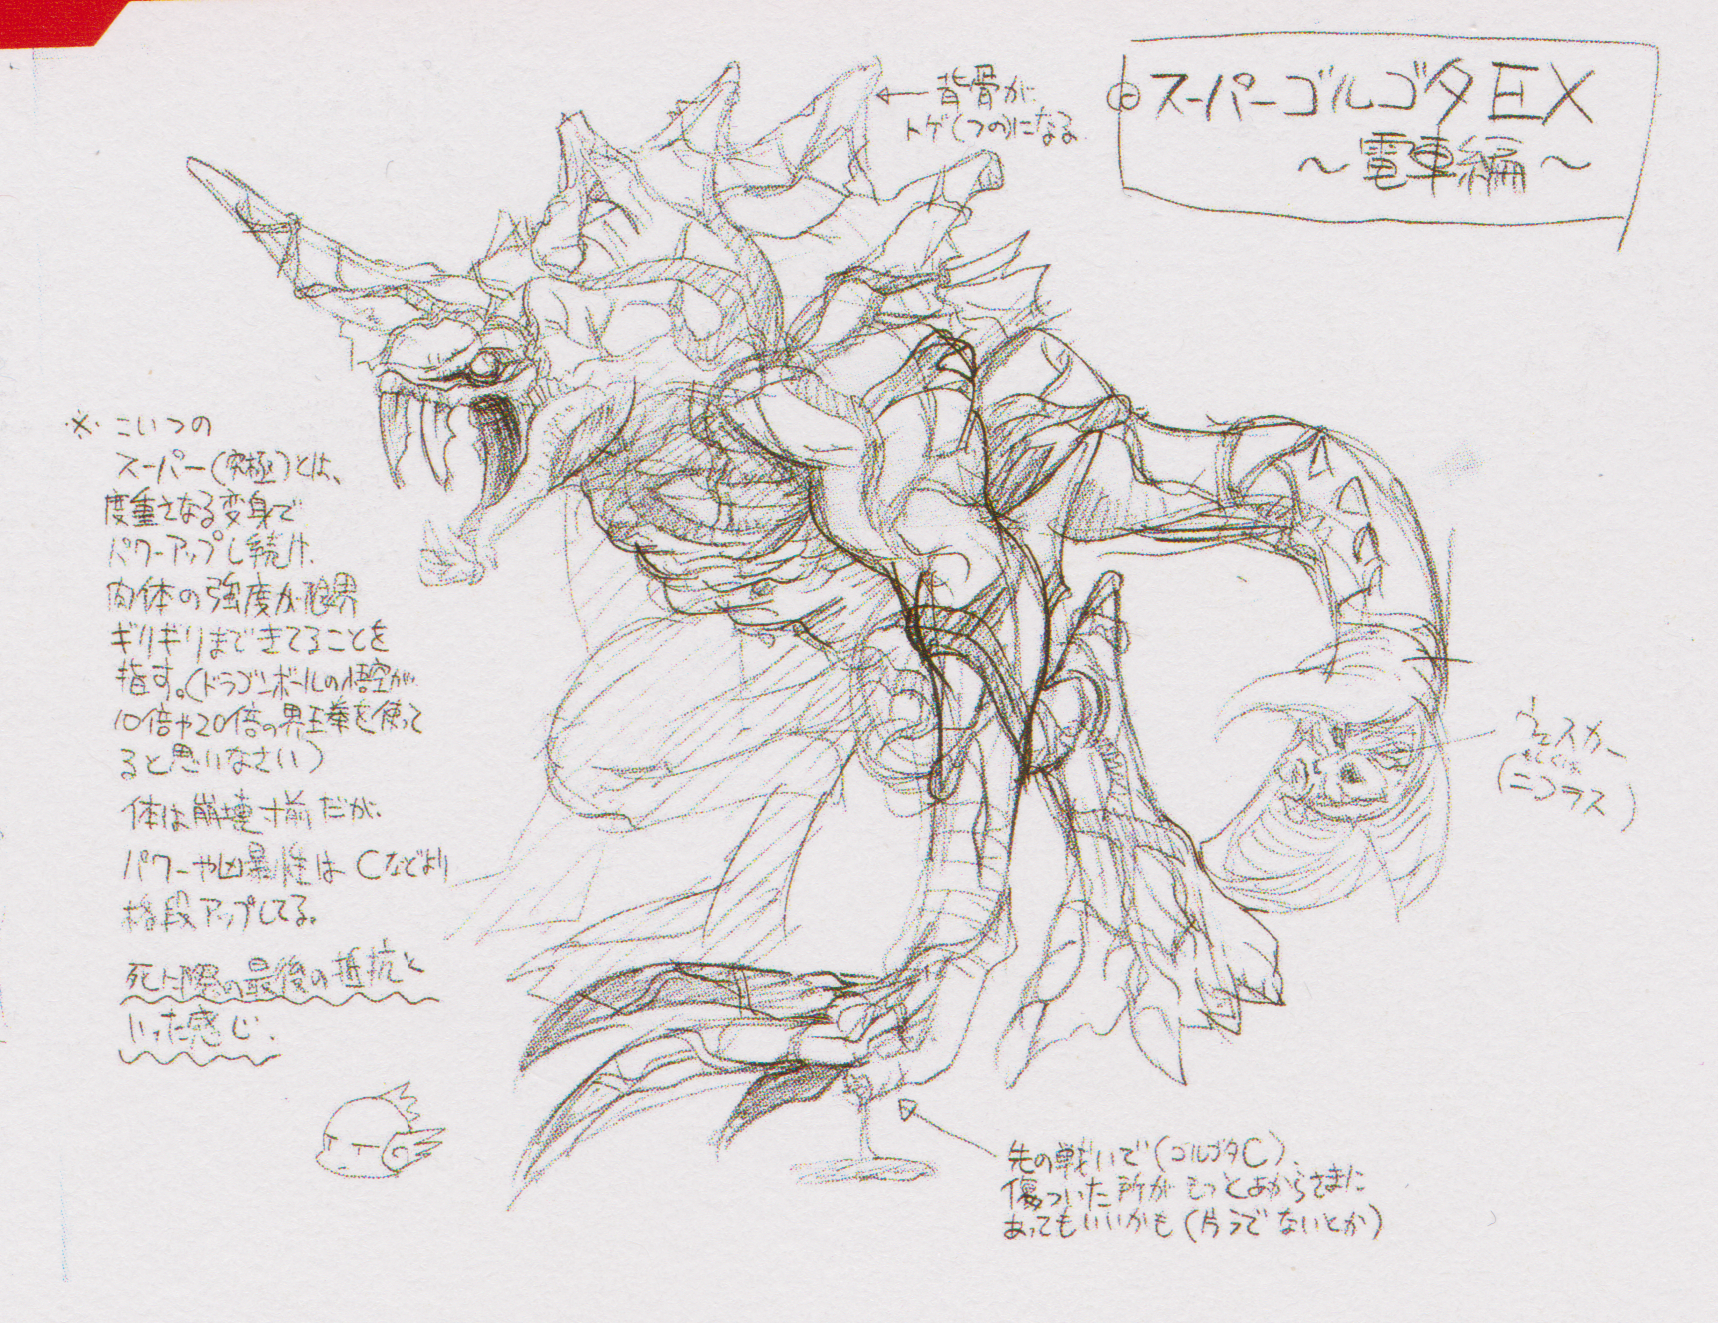 ⊖スーパーゴルゴタEX
～電車編～
背骨が
トゲ(つの)になる
※こいつの
スーパー(究極)とは、
度重さなる変身で
パワーアップし続け、
肉体の強度が限界
ギリギリまできてることを
指す。(ドラゴンボールの悟空が、
10倍や20倍の界王拳を使って
ると思いなさい)
体は崩壊寸前だが、
パワーや凶暴性はCなどより
格段アップしてる。
死に際の最後の抵抗と
いった感じ.
ウェスカー
もしくは
(ニコラス)
先の戦いで(ゴルゴタC)、
傷ついた所がもっとあからさまに
あってもいいかも(片うでないとか)